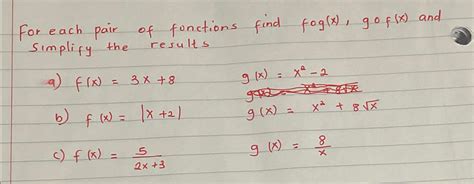 For each pair of fonctions find fog(x), gof(x) and
Simplify the results
a) f(x) = 3x + 8 g(x) = x² - 2
b) f(x) = |x + 2| g(x) = x² + 8√x
c) f(x) = 5/(2x+3) g(x) = 8/x